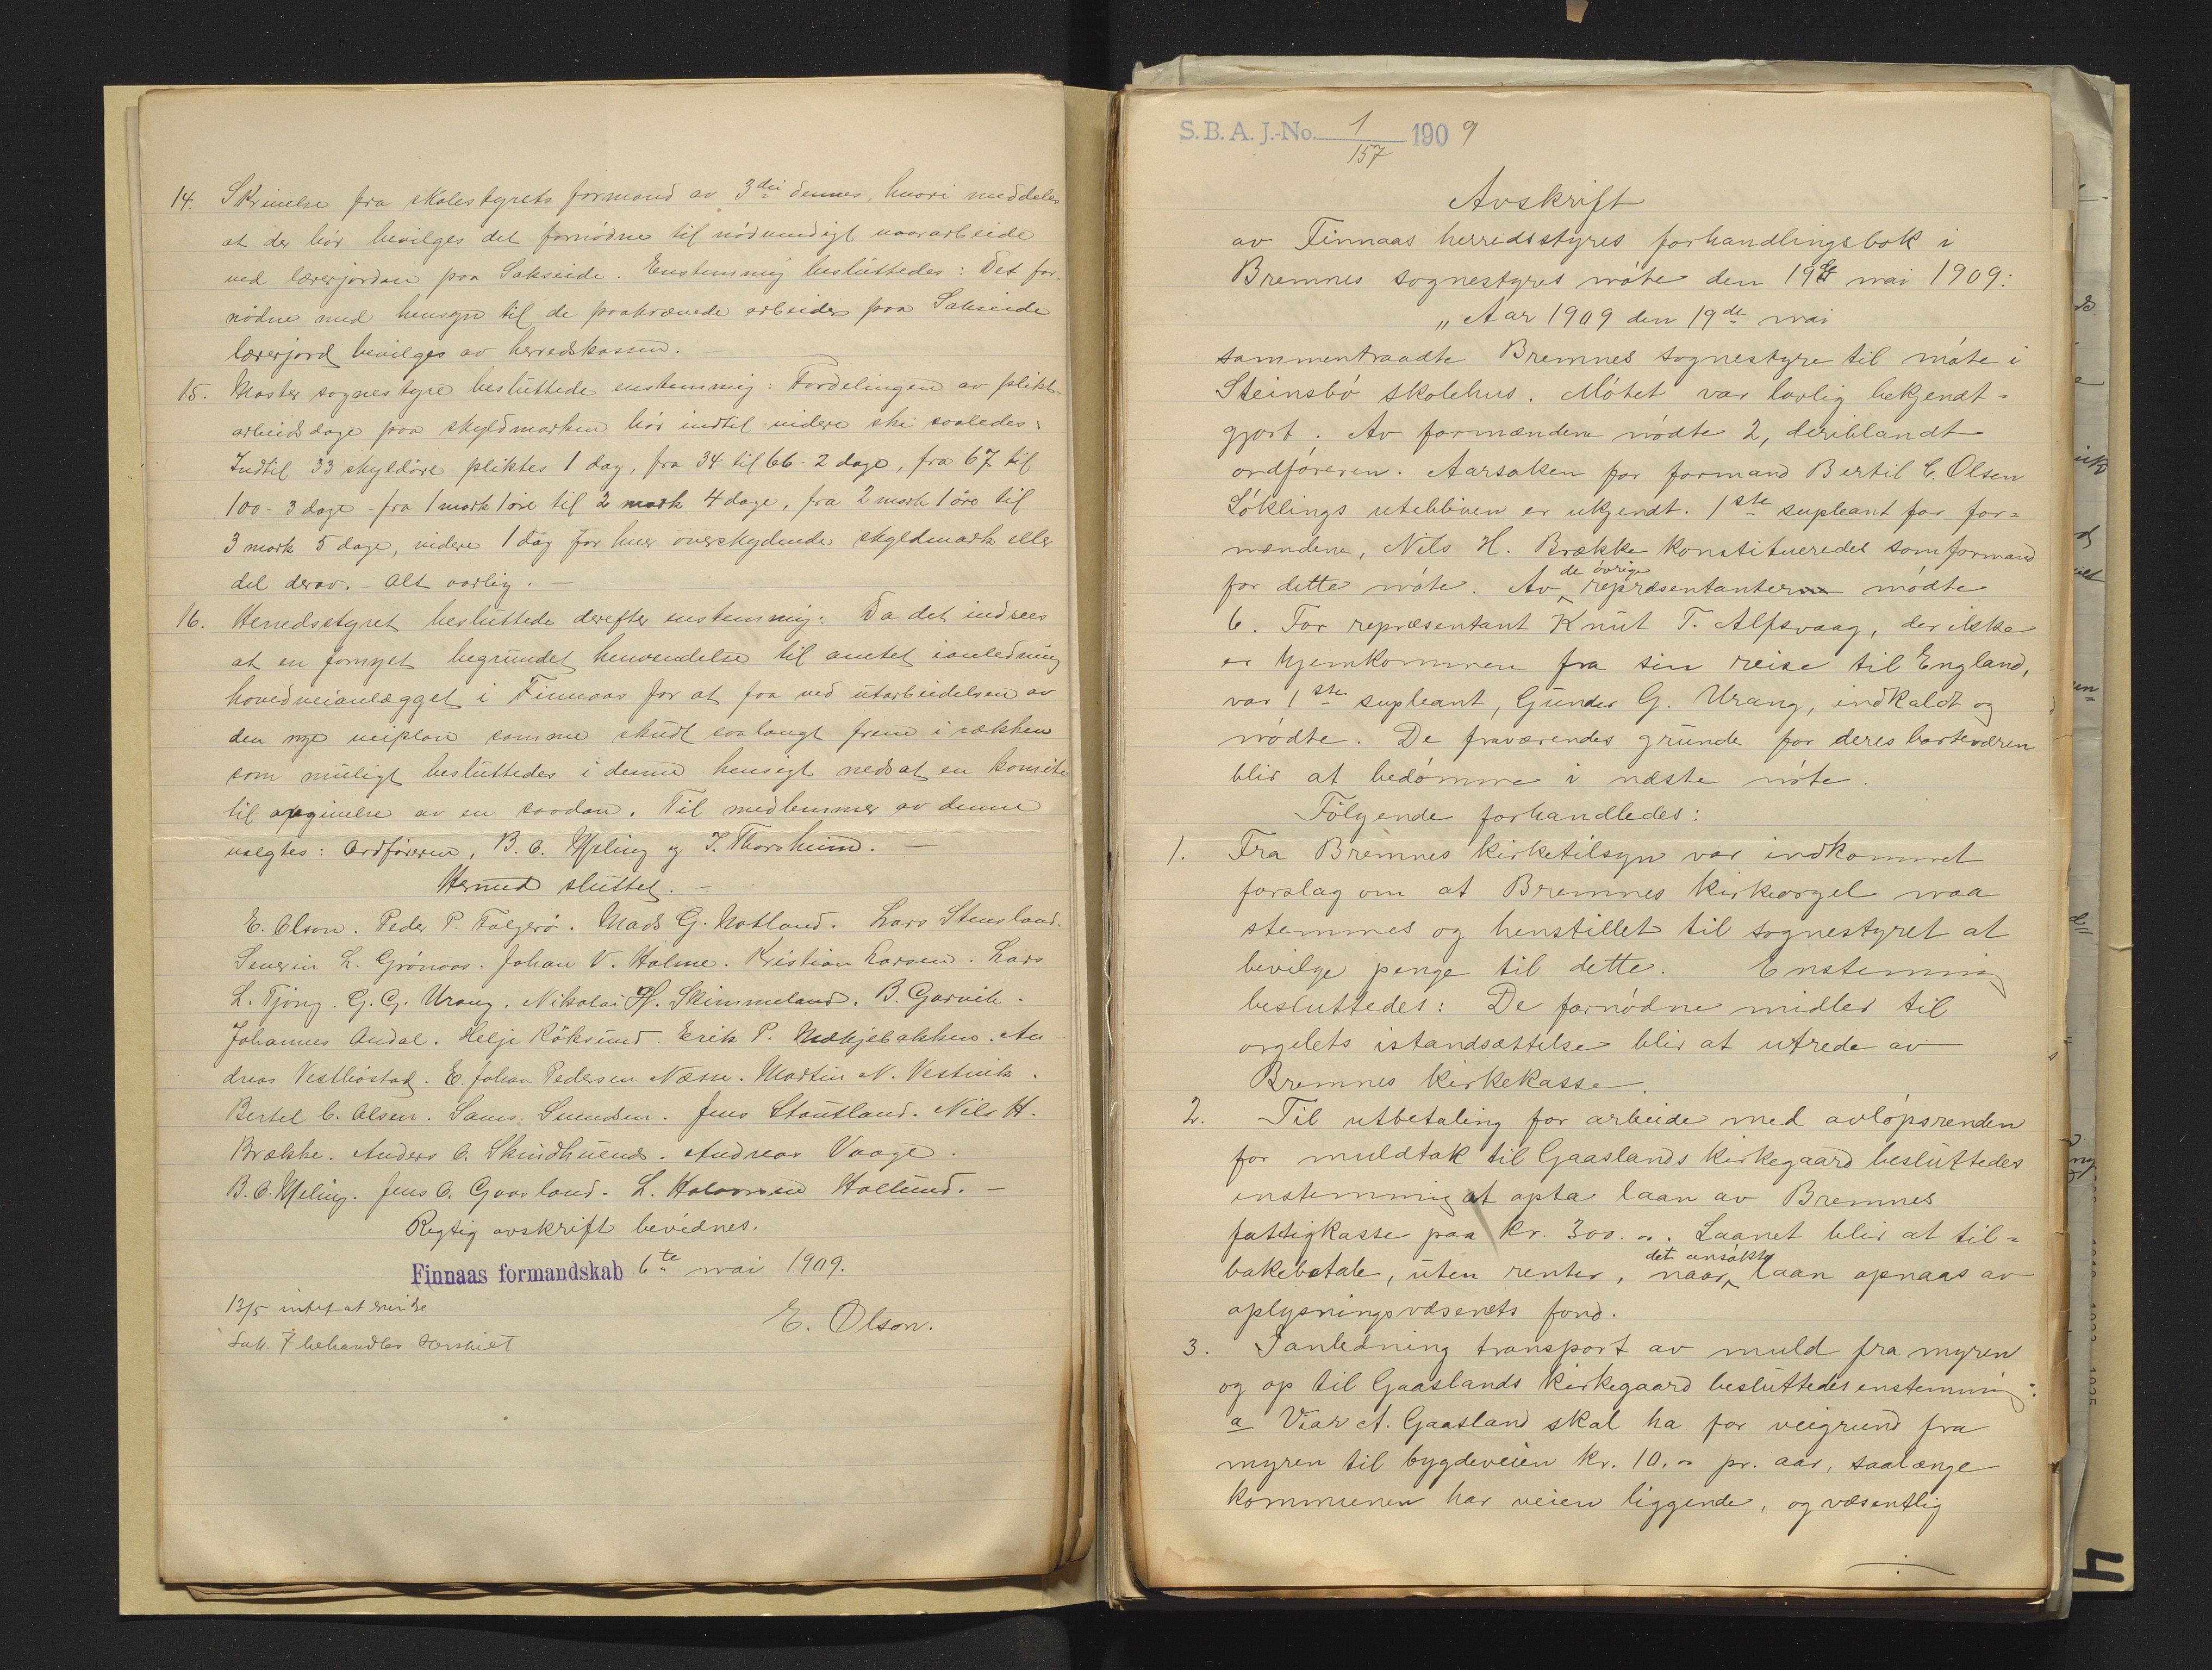 14. Skrivelse fra skolestyrets formand av 3die dennes, hvori meddeles
at der bør bevilges det fornødne til nødvendigt vaararbeide
ved lærerjorden paa Sakseide. Enstemmig besluttedes: Det for-
nødne med hensyn til de paakrævede arbeider paa Sakseide
lærerjord bevilges av herredskassen.
15. Moster sognestyre besluttede enstemmig: Fordelingen av plikt-
arbeidsdage paa skyldmarken bør indtil videre ske saaledes:
Indtil 33 skyldøre pliktes 1 dag, fra 34 til 66 - 2 dage, fra 67 til
100 - 3 dage - fra 1 mark 1 øre til 2 mark 4 dage, fra 2 mark 1 øre til
3 mark 5 dage, videre 1 dag for hver overskydende skyldmark eller
del derav. - Alt aarlig. -
16. Herredsstyret besluttede derefter enstemmig: Da det indsees
at en fornyet begrundet henvendelse til amtet ianledning
hovedveianlægget i Finnaas for at faa ved utarbeidelsen av
den nye veiplan samme skudt saalangt frem i rækken
som muligt besluttedes i denne hensigt nedsat en komite
til avgivelse av en saadan. Til medlemmer av denne
valgtes: Ordføreren, B. C. Meling og I. Thorsheim. -
Hermed sluttet. -
E. Olson. Peder P. Folgerø. Mads G. Notland. Lars Stensland.
Severin L. Grønaas. Johan V. Holme. Kristian Larsen. Lars
L. Tjong. G. G. Urang. Nikolai H. Skimmeland. B. Gorvik.
Johannes Andal. Helje Røksund. Erik P. Mækjebakken. An-
dreas Vestbøstad. E. Johan Pedersen Næsse. Martin N. Vestvik.
Bertel C. Olsen. Sams. Svendsen. Jens Stautland. Nils H.
Brække. Anders O. Skindhuends. Andreas Vaage.
B. C. Meling. Jens O. Gaasland. L. Halvorsen Hollund. -
Rigtig avskrift bevidnes.
Finnaas formandskab 6te mai 1909.
E. Olson.
13/5 intet at erindre
Sak 7 behandles særskilt
S. B. A. J.-No. 1/157 1909
Avskrift
av Finnaas herredsstyres forhandlingsbok i
Bremnes sognestyres møte den 19de mai 1909:
"Aar 1909 den 19de mai
sammentraadte Bremnes sognestyre til møte i
Steinsbø skolehus. Møtet var lovlig bekjendt=
gjort. Av formændene mødte 2, deriblandt
ordføreren. Aarsaken for formand Bertil C. Olsen
Løklings uteblivén er ukjendt. 1ste supleant for for=
mændene, Nels H. Brække konstitueredes som formand
for dette møte. Av de øvrige repræsentanter mødte
6. For repræsentant Knut T. Alfsvaag, der ikke
er hjemkommen fra sin reise til England,
var 1ste supleant, Gunder G. Urang, indkaldt og
mødte. De fraværendes grunde for deres borteværen
blir at bedømme i næste møte.
Følgende forhandledes:
1. Fra Bremnes kirketilsyn var indkommet
forslag om at Bremnes kirkeorgel maa
stemmes og henstillet til sognestyret at
bevilge penge til dette. Enstemmig
besluttedes: De fornødne midler til
orgelets istandsættelse blir at utrede av
Bremnes kirkekasse.
2. Til utbetaling for arbeide med avløpsrenden
for muldtak til Gaaslands kirkegaard besluttedes
enstemmig at opta laan av Bremnes
fattigkasse paa kr. 300.00. Laanet blir at til=
bakebetale, uten renter, naar det ansøkte laan opnaaes av
oplysningsvæsenets fond.
3. Ianledning transport av muld fra myren
og op til Gaaslands kirkegaard besluttedes enstemmig:
a Viar A. Gaasland skal ha for veigrund fra
myren til bygdeveien kr. 10.00 pr. aar, saalænge
kommunen har veien liggende, og væsentlig